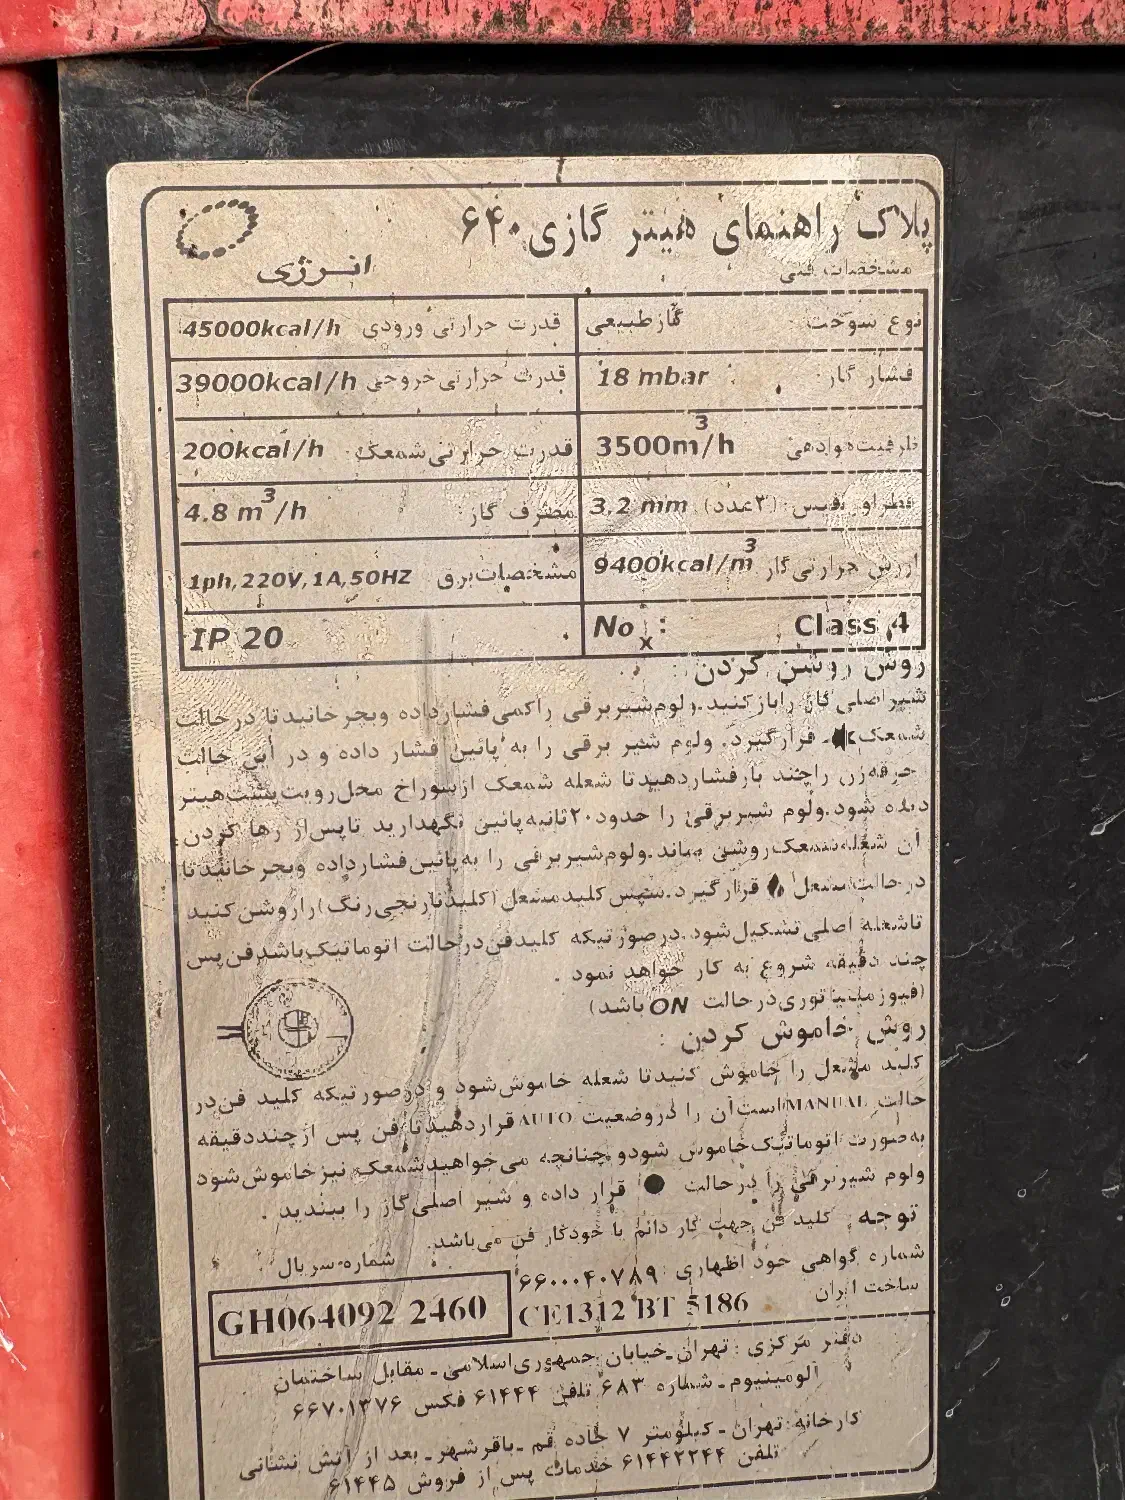 پلاک راهنمای هیتر گازی ۶۴۰
انرژی
مشخصات فنی
نوع سوخت گاز طبیعی
قدرت حرارتی ورودی 45000kcal/h
فشار گاز 18 mbar
قدرت حرارتی خروجی 39000kcal/h
ظرفیت هوادهی 3500m³/h
قدرت حرارتی شمعک 200kcal/h
قطر اوریفیس (۳عدد) 3.2 mm
مصرف گاز 4.8 m³/h
ارزش حرارتی گاز 9400kcal/m³
مشخصات برق 1ph,220V,1A,50HZ
Noₓ: Class 4
IP 20
روش روشن کردن:
شیر اصلی گاز را باز کنید. ولوم شیر برقی را کمی فشار داده و بچرخانید تا در حالت
شمعک قرار گیرد. ولوم شیر برقی را به پائین فشار داده و در این حالت
جرقه‌زن را چند بار فشار دهید تا شعله شمعک از سوراخ محل رویت پشت هیتر
دیده شود. ولوم شیر برقی را حدود ۲۰ ثانیه پائین نگهدارید تا پس از رها کردن
آن شعله شمعک روشن بماند. ولوم شیر برقی را به پائین فشار داده و بچرخانید تا
در حالت مشعل قرار گیرد. سپس کلید مشعل (کلید نارنجی رنگ) را روشن کنید
تا شعله اصلی تشکیل شود. در صورتیکه کلید فن در حالت اتوماتیک باشد فن پس
چند دقیقه شروع به کار خواهد نمود.
(فیوز مینیاتوری در حالت ON باشد)
روش خاموش کردن:
کلید مشعل را خاموش کنید تا شعله خاموش شود و در صورتیکه کلید فن در
حالت MANUAL است آن را در وضعیت AUTO قرار دهید تا فن پس از چند دقیقه
به صورت اتوماتیک خاموش شود و چنانچه می‌خواهید شمعک نیز خاموش شود
ولوم شیر برقی را در حالت ● قرار داده و شیر اصلی گاز را ببندید.
توجه: کلید فن جهت کار دائم یا خودکار فن می‌باشد.
شماره گواهی خود اظهاری ۶۶۰۰۰۴۰۷۸۹
شماره سریال
ساخت ایران
CE1312 BT 5186
GH064092 2460
دفتر مرکزی: تهران-خیابان جمهوری اسلامی - مقابل ساختمان
آلومینیوم - شماره ۶۸۳ تلفن ۶۱۴۴۴ فکس ۶۶۷۰۱۳۷۶
کارخانه: تهران - کیلومتر ۷ جاده قم - باقرشهر - بعد از آتش نشانی
تلفن ۶۱۴۴۲۲۴۴ خدمات پس از فروش ۶۱۴۴۵